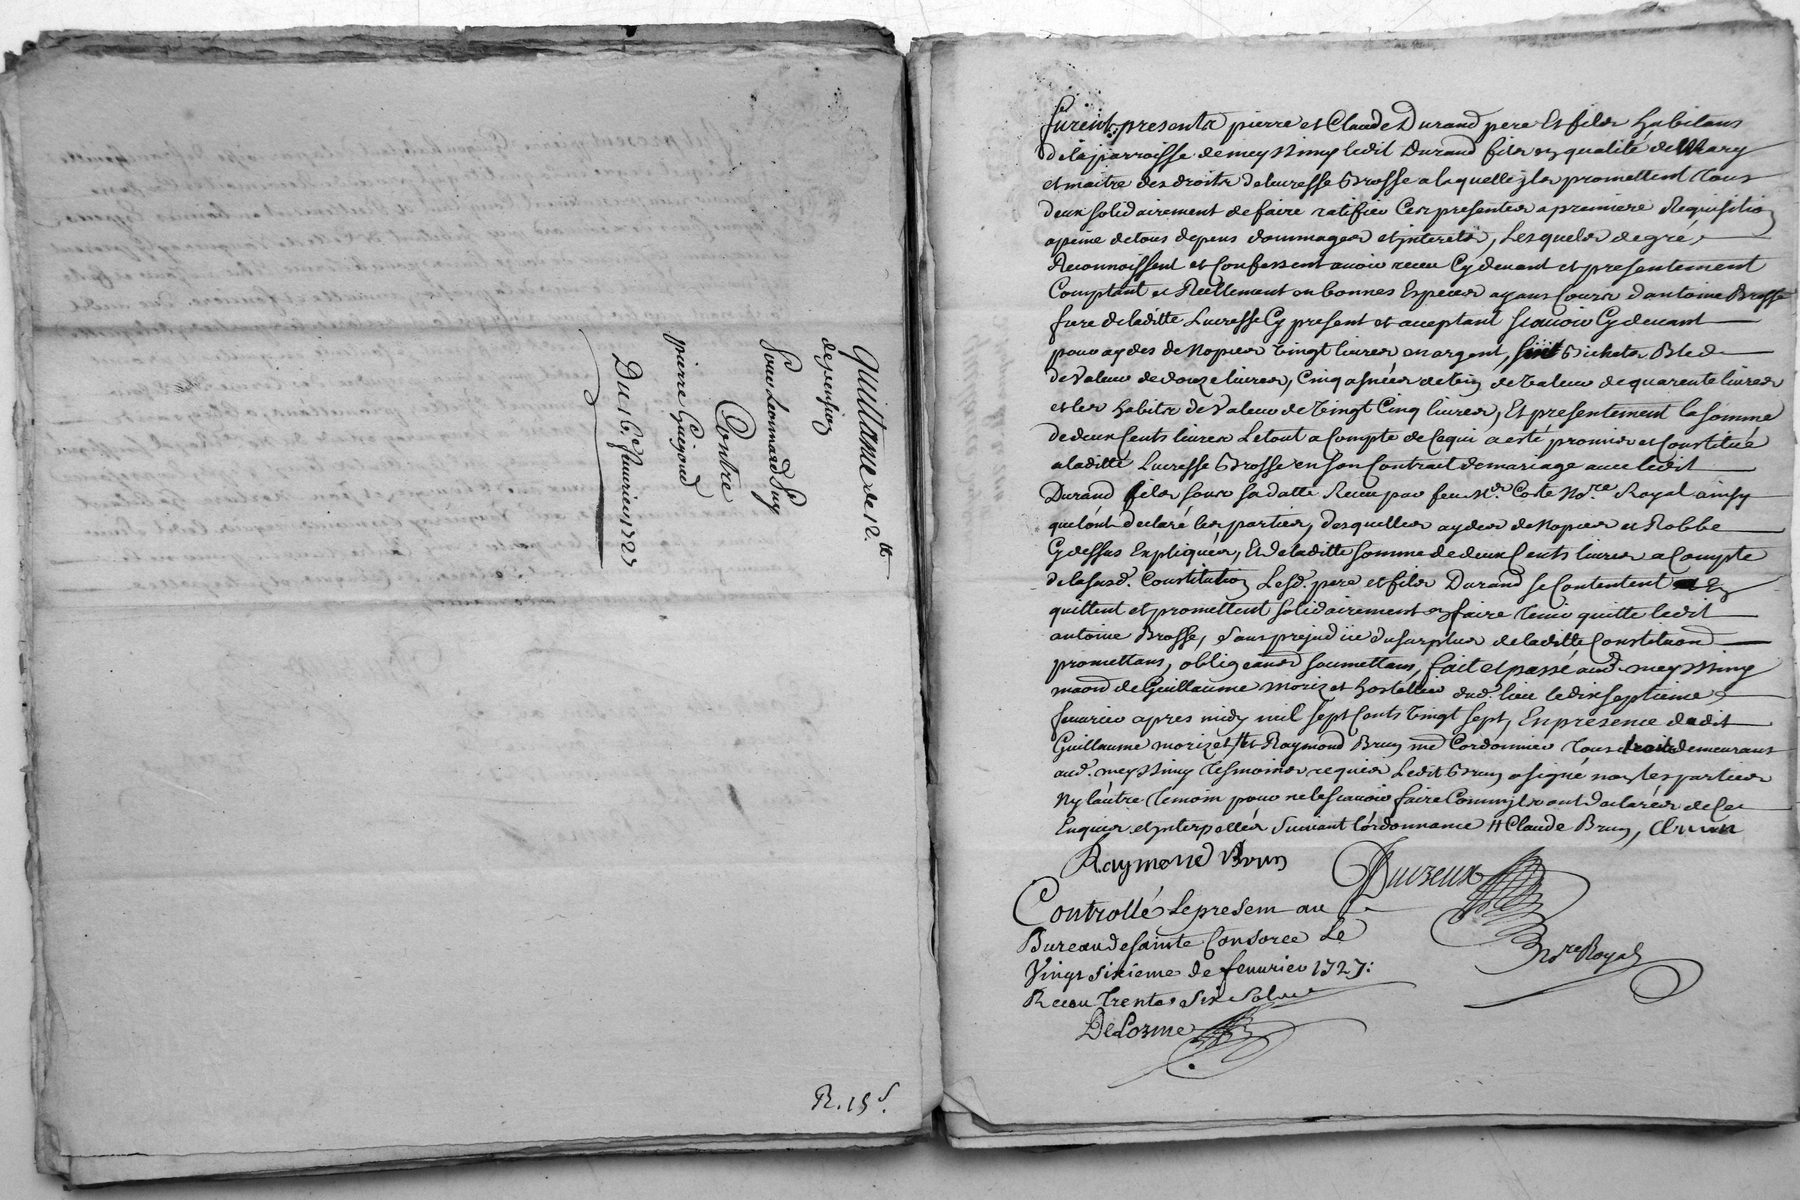 Quittance de 12ᵗᵗ
de pension
Pour Leonnard Suy
Contre
pierre Guigoud
Du 16ᵉ feuvrier 1727
R. 15ˢ.
furent presents pierre et Claude Durand pere et fils habitans
de la parroisse de meyssimy ledit Durand fils en qualité de Mary
et maitre des droits de lucresse Brosse a laquelle ils promettent tous
deux solidairement de faire ratifier Ces presentes a premiere Requisition
a peine de tous depens dommages et interets, Lesquels de gré
Reconnoissent et Confessent avoir receu Cy devant et presentement
Comptant et Reellement en bonnes Especes ayans Cours d'antoine Brosse
frere de laditte Lucresse Cy present et acceptant sçavoir Cy devant
pour aydes de Nopces Vingt livres en argent, bichets Bled
de Valeur de douze livres, Cinq asnées de vin de Valeur de quarente livres
et les habits de Valeur de Vingt Cinq livres, Et presentement la somme
de deux Cents livres Le tout a Compte de Ce qui a esté promis et Constitué
a laditte Lucresse Brosse en son Contrat de mariage avec ledit
Durand fils sous sa datte Receu par feu Mʳ. Coste Noʳᵉ Royal ainsy
que l'ont declaré les parties, desquelles aydes de Nopces et Robbe
Cy dessus Expliquées, Et de laditte somme de deux Cents livres a Compte
de la susd. Constitution Lesd. pere et fils Durand se Contentent en
quittent et promettent solidairement en faire tenir quitte ledit
antoine Brosse, sans prejudice du surplus de laditte Constitution
promettans, obligeans soumettans, fait et passé aud. meyssimy
maison de Guillaume morizet hostellier dud. lieu le dix septieme
feuvrier apres midy mil sept Cents Vingt sept, En presence dudit
Guillaume morizet et Raymond Brun md Cordonnier tous demeurans
aud. meyssimy tesmoins requis Ledit Brun a signé non les parties
Ny l'autre temoin pour ne le sçavoir faire Comm'ils ont declarés de Ce
Enquis et interpellés suivant l'ordonnance # Claude Brun,
Raymond Brun
Duizeux
noʳᵉ Royal
Controllé Le present au
Bureau de sainte Consorce Le
Vingt sixieme de feuvrier 1727:
Receu trente six sols
DeLorme